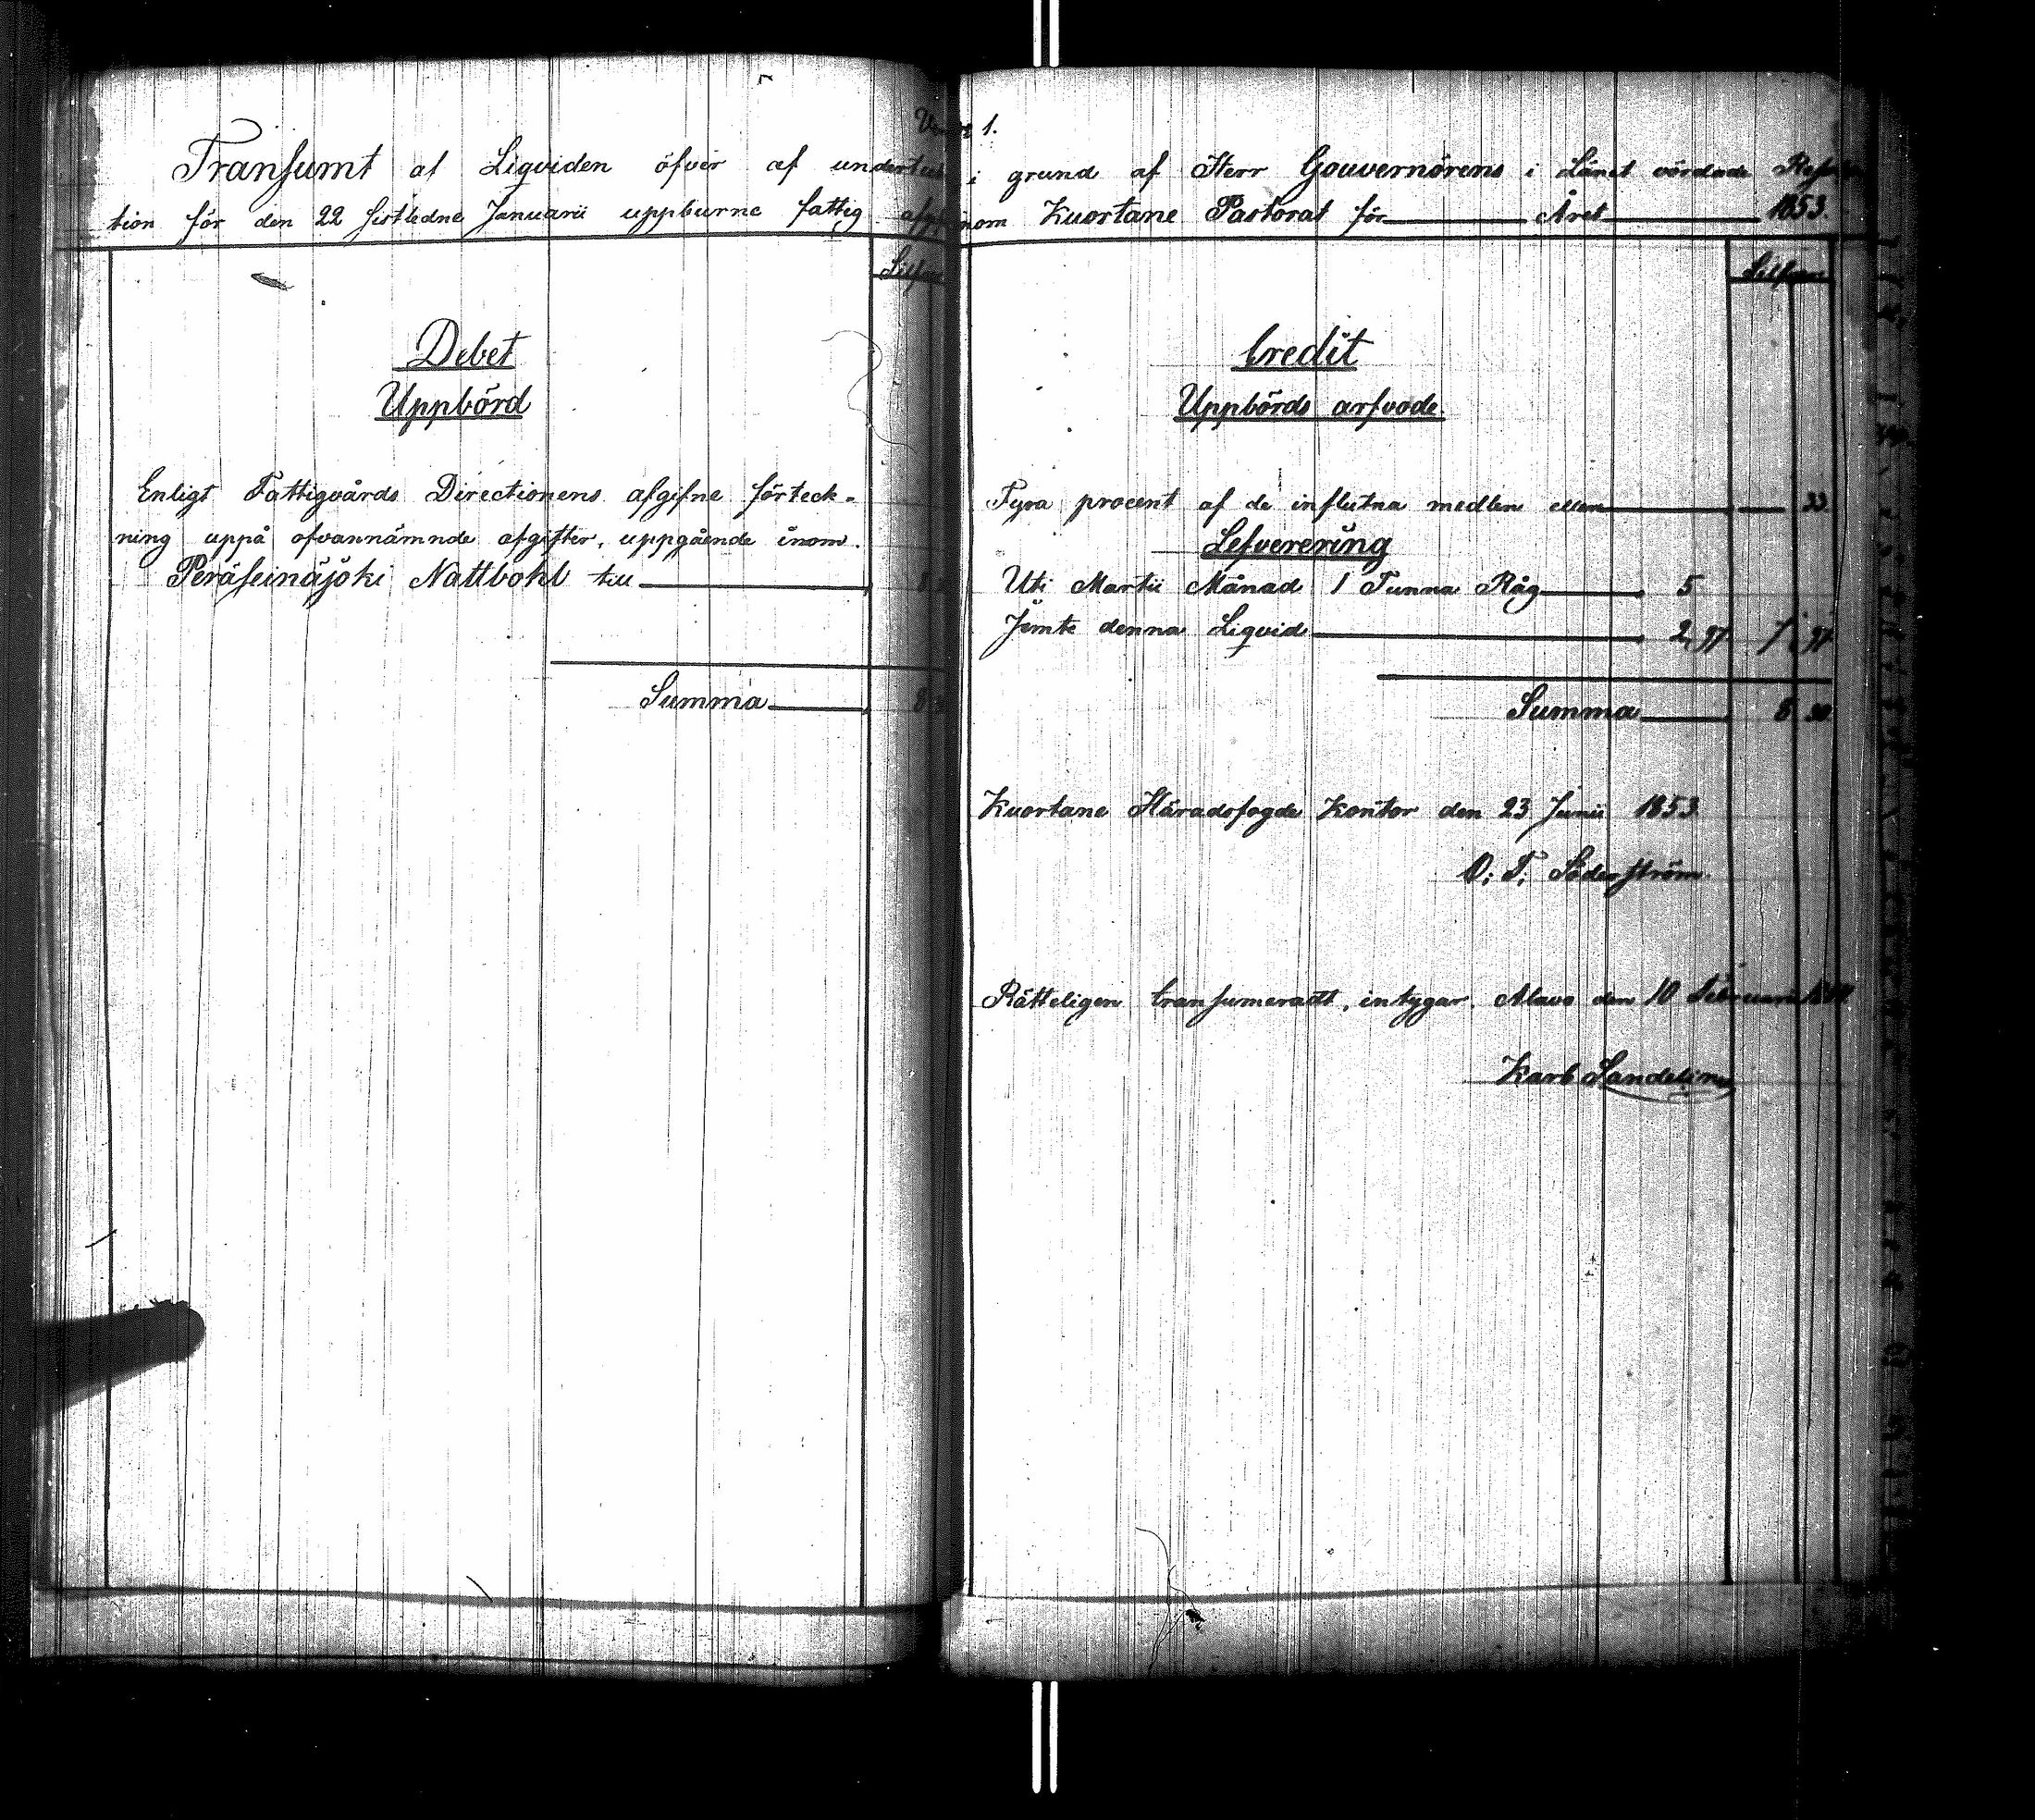 1.
Transumt af Liqviden öfver af undertecknad i grund af Herr Gouvernörens i Länet vördade
tion för den 22 sistledne Januarii uppburne fattig inom Kuortane Pastorat för Året 1853.
Silfver
Debet
Uppbörd
Enligt Fattigvårds Directionens afgifne förteck-
ning uppå ofvannämnde afgifter, uppgående inom
Peräseinäjöki Nattbohl till 8
Summa 8
Silfver
Credit
Uppbörds arfvode
Fyra procent af de influtna medlen eller 33
Lefverering
Uti Martii Månad 1 Tunna Råg 5
Jemte denna Liqvid 2 97 7 97
Summa 8 30
Kuortane Häradsfogde Kontor den 23 Junii 1853
O. T. Söderström
Rätteligen transumeradt, intygar. Alavo den 10 Februarii
Karl Sandelin